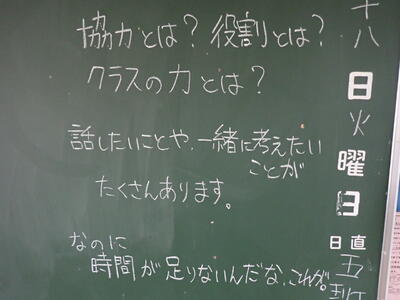 協力とは？役割とは？
クラスの力とは？
話したいことや、一緒に考えたい
ことが
たくさんあります。
なのに
時間が足りないんだな、これが。
十八
日
火
曜
日
日直
五